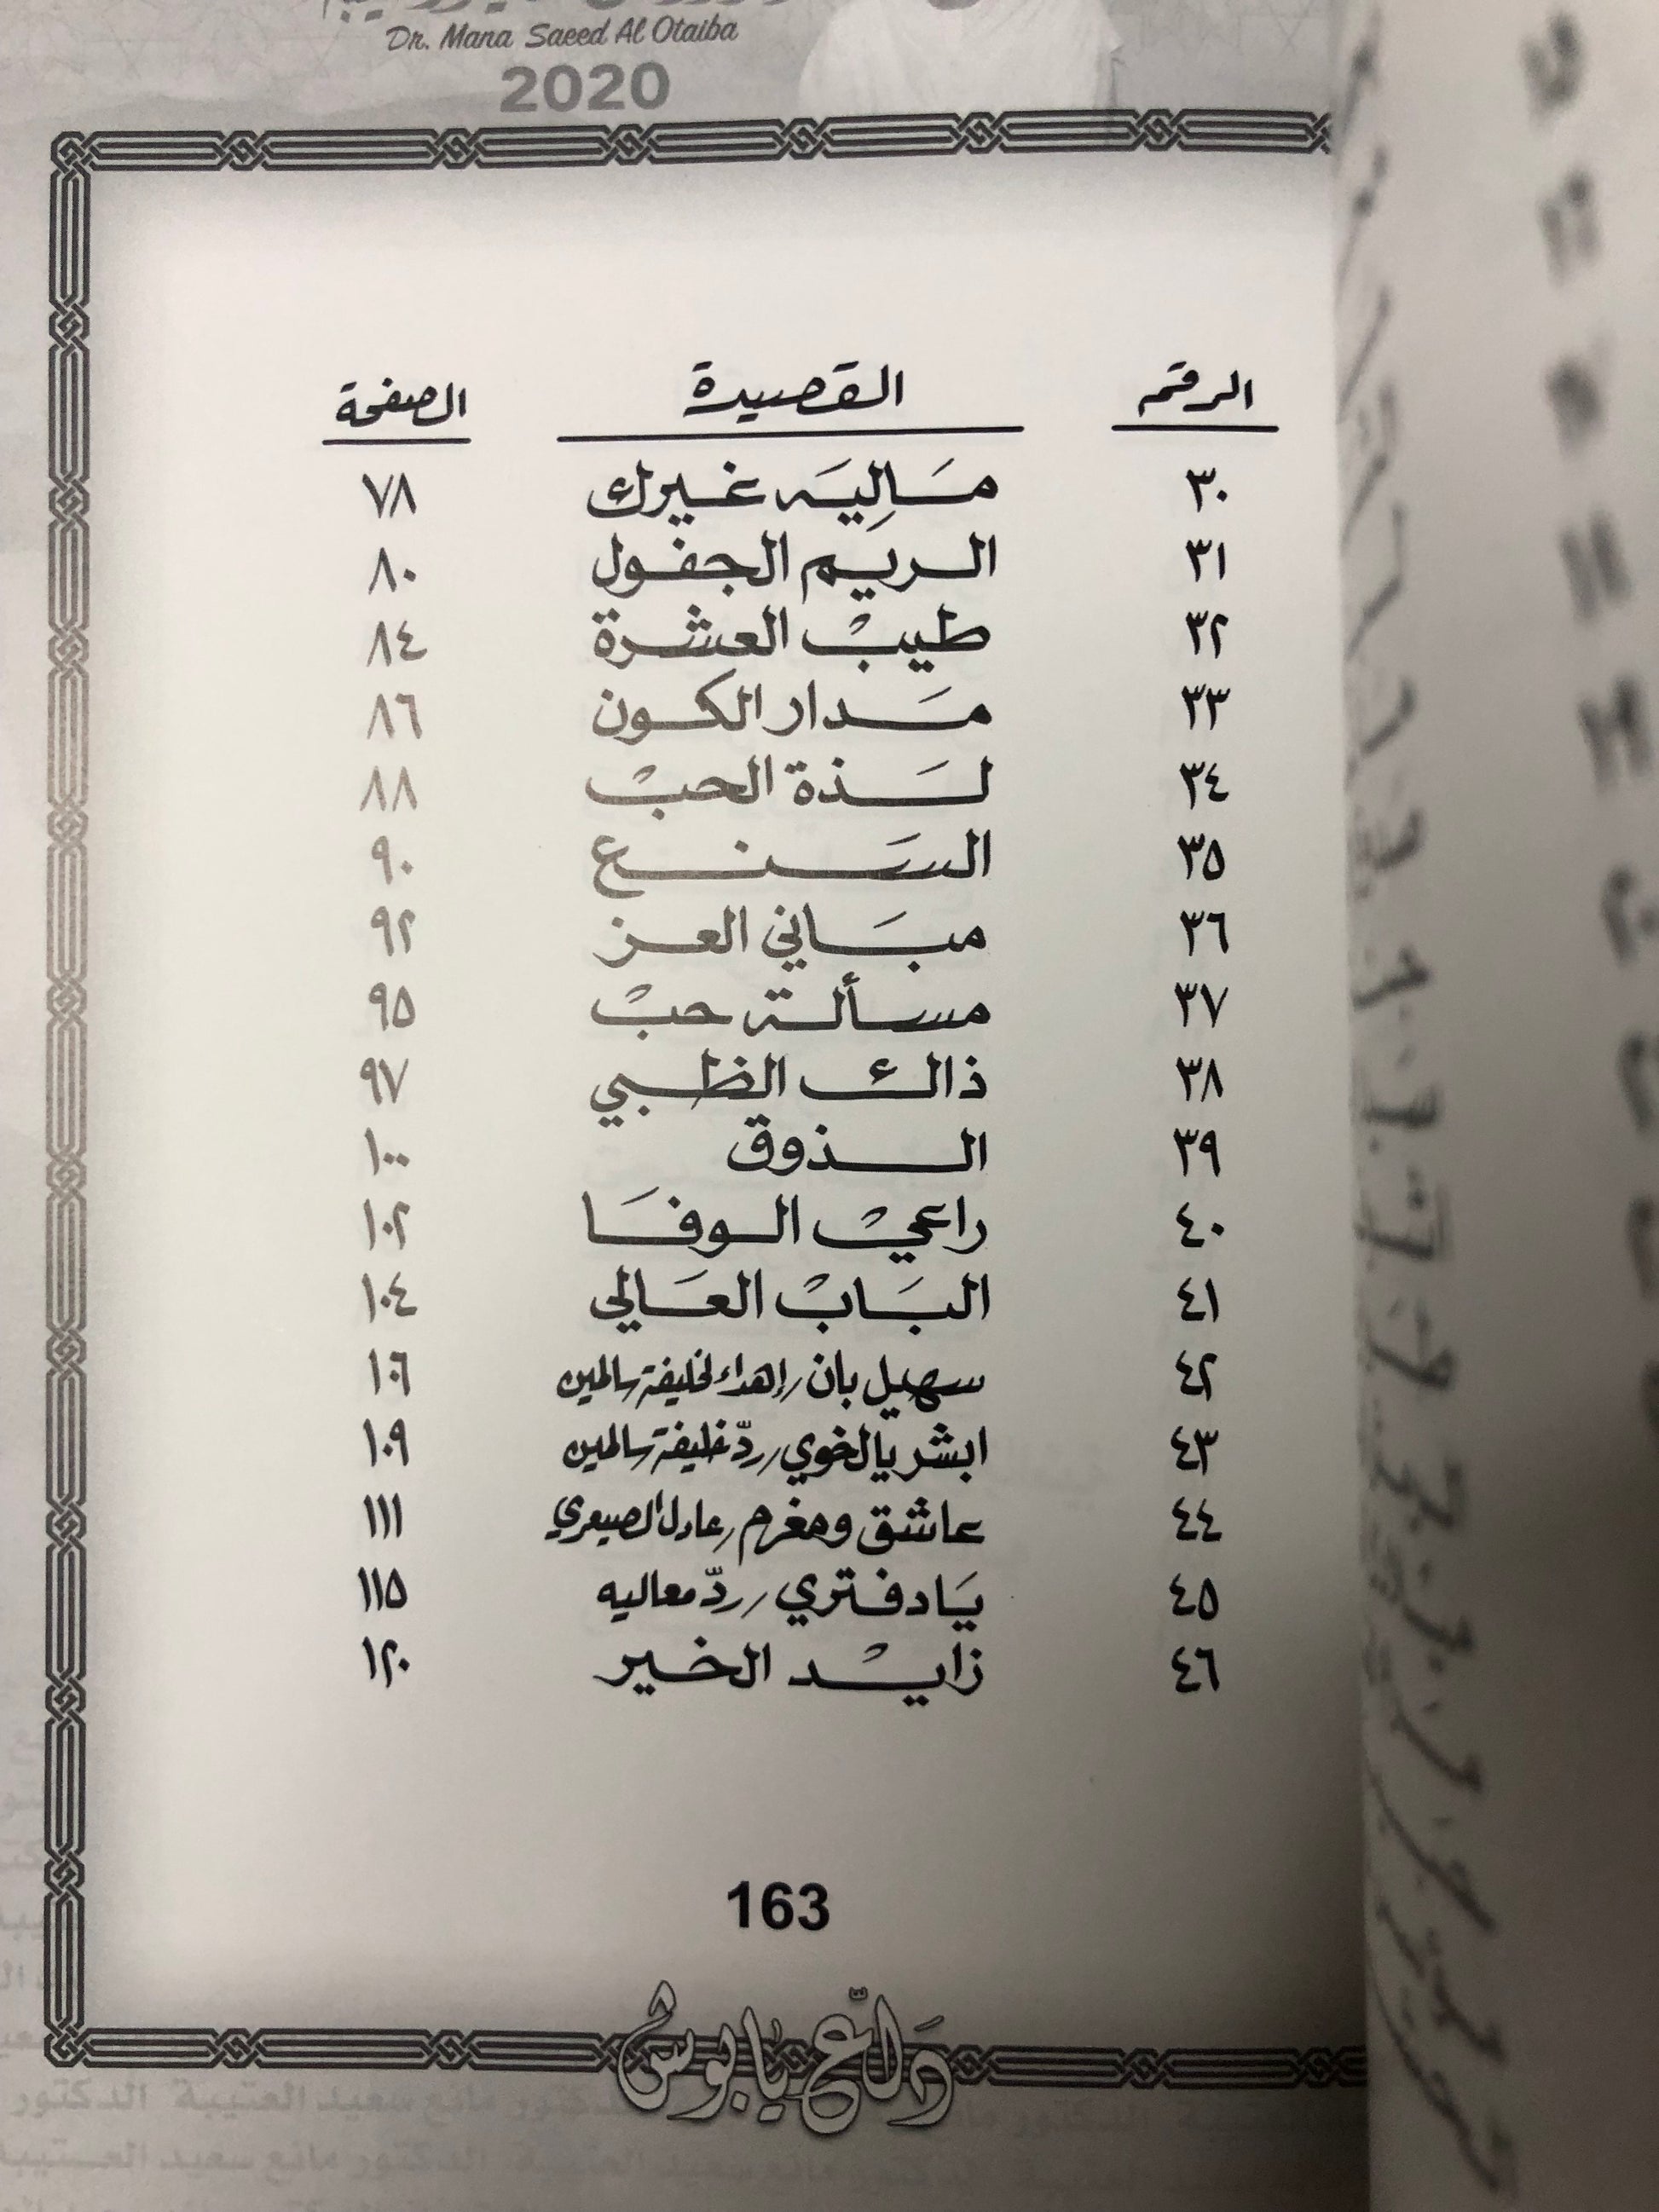 Dr. Mana Saeed Al Otaiba
2020
الرقم القصيدة الصفحة
٣٠ مَالِيَه غيرك ٧٨
٣١ الريم الجفول ٨٠
٣٢ طيبْ العشرة ٨٤
٣٣ مَدار الكون ٨٦
٣٤ لَذة الحبْ ٨٨
٣٥ السَنع ٩٠
٣٦ مبَاني العز ٩٢
٣٧ مسألة حبْ ٩٥
٣٨ ذاك الظبي ٩٧
٣٩ الذوق ١٠٠
٤٠ راعيْ الوفَا ١٠٢
٤١ البَابْ العَالي ١٠٤
٤٢ سهيل بان / إهداء لخليفة سالمين ١٠٦
٤٣ ابشر يالخوي / ردّ خليفة سالمين ١٠٩
٤٤ عاشق ومغرم / عادل الصيعري ١١١
٤٥ يَا دفتري / ردّ معاليه ١١٥
٤٦ زايدْ الخير ١٢٠
163
دَلّاع يا بوش
الدكتور مانع سعيد العتيبة الدكتور
الدكتور مانع سعيد العتيبة